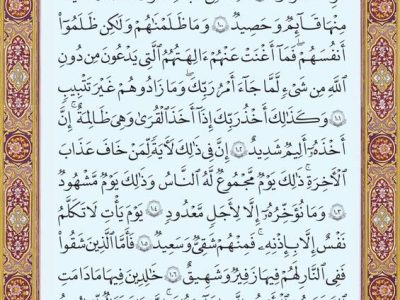 مِنْهَا قَآئِمٌ وَحَصِيدٌ ۝١٠٠ وَمَا ظَلَمْنَٰهُمْ وَلَٰكِن ظَلَمُوٓا۟
أَنفُسَهُمْ ۖ فَمَآ أَغْنَتْ عَنْهُمْ ءَالِهَتُهُمُ ٱلَّتِى يَدْعُونَ مِن دُونِ
ٱللَّهِ مِن شَىْءٍ لَّمَّا جَآءَ أَمْرُ رَبِّكَ ۖ وَمَا زَادُوهُمْ غَيْرَ تَتْبِيبٍ
۝١٠١ وَكَذَٰلِكَ أَخْذُ رَبِّكَ إِذَآ أَخَذَ ٱلْقُرَىٰ وَهِىَ ظَٰلِمَةٌ ۚ إِنَّ
أَخْذَهُۥٓ أَلِيمٌ شَدِيدٌ ۝١٠٢ إِنَّ فِى ذَٰلِكَ لَءَايَةً لِّمَنْ خَافَ عَذَابَ
ٱلْءَاخِرَةِ ۚ ذَٰلِكَ يَوْمٌ مَّجْمُوعٌ لَّهُ ٱلنَّاسُ وَذَٰلِكَ يَوْمٌ مَّشْهُودٌ
۝١٠٣ وَمَا نُؤَخِّرُهُۥٓ إِلَّا لِأَجَلٍ مَّعْدُودٍ ۝١٠٤ يَوْمَ يَأْتِ لَا تَكَلَّمُ
نَفْسٌ إِلَّا بِإِذْنِهِۦ ۚ فَمِنْهُمْ شَقِىٌّ وَسَعِيدٌ ۝١٠٥ فَأَمَّا ٱلَّذِينَ شَقُوا۟
فَفِى ٱلنَّارِ لَهُمْ فِيهَا زَفِيرٌ وَشَهِيقٌ ۝١٠٦ خَٰلِدِينَ فِيهَا مَا دَامَتِ